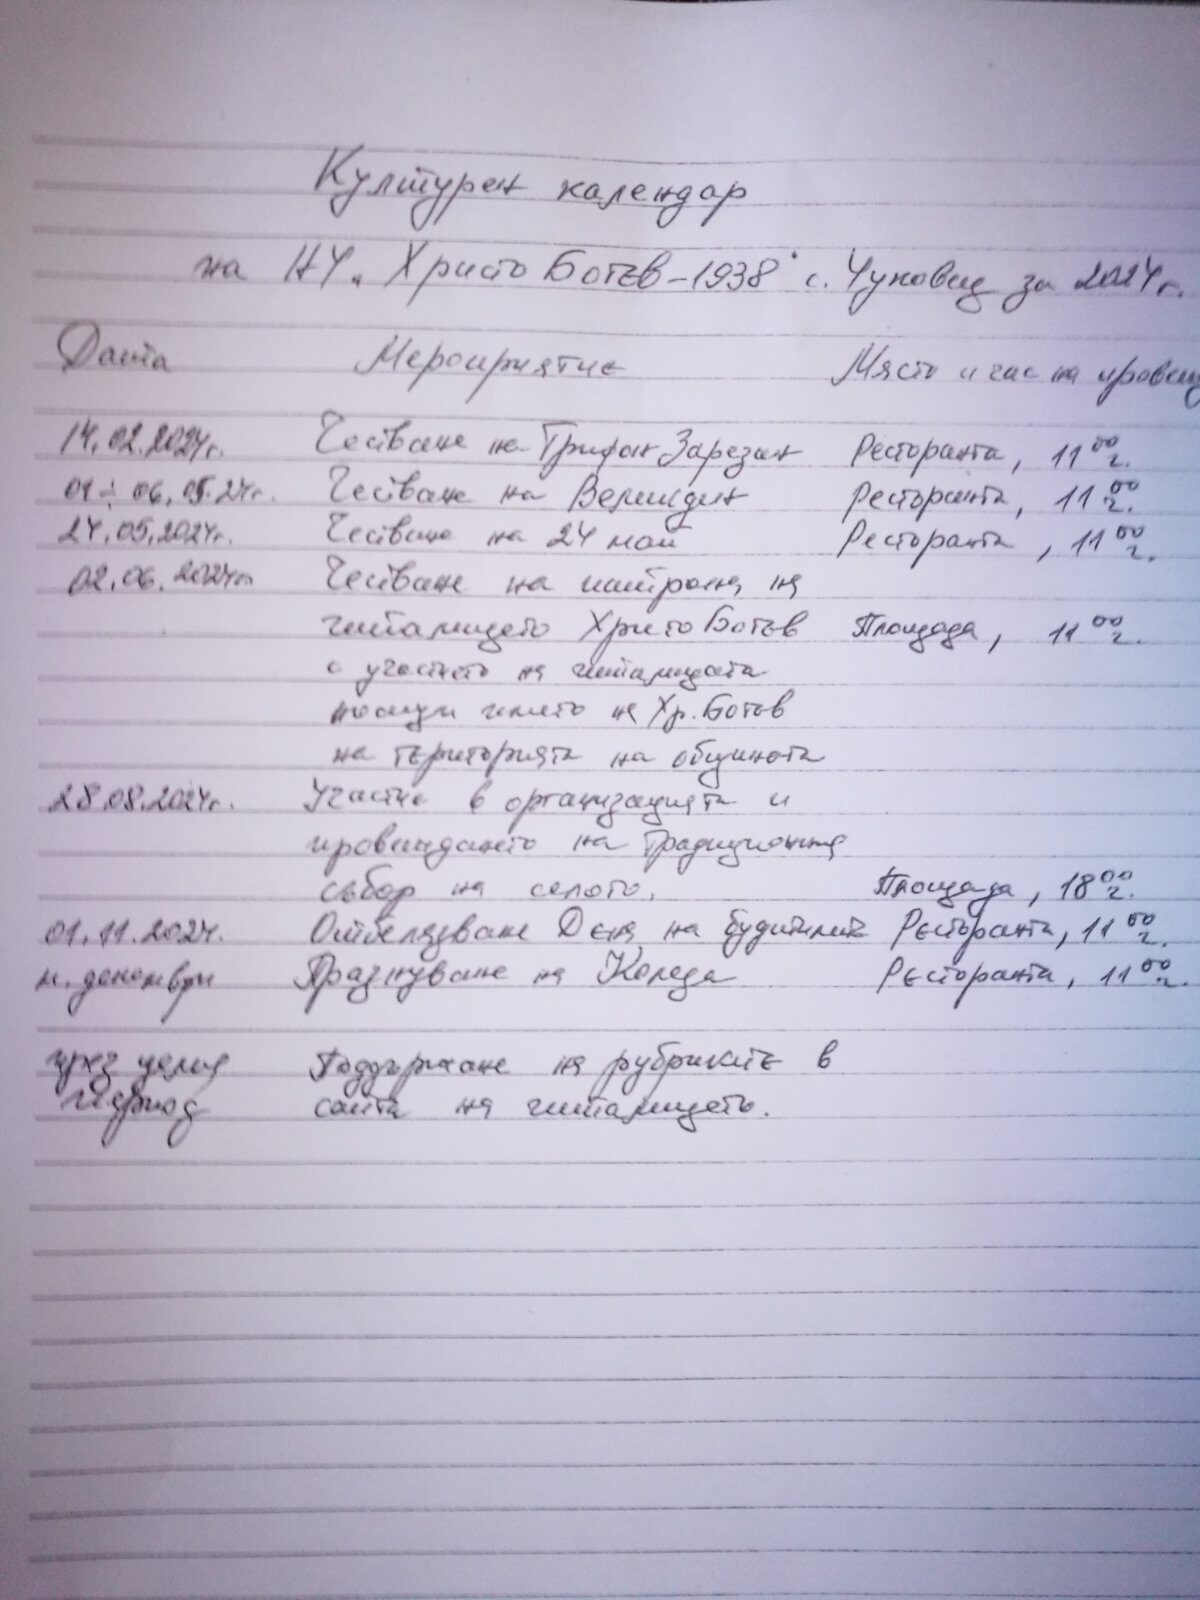 Културен календар
на НЧ „Христо Ботев-1938" с. Чуковец за 2024г.
Дата Мероприятие Място и час на
14.02.2024г. Честване на Трифон Зарезан Ресторанта, 11 00 ч.
01 ÷ 06.05.24г. Честване на Великден Ресторанта, 11 00 ч.
24.05.2024г. Честване на 24 май Ресторанта, 11 00 ч.
02.06.2024г. Честване на патрона на
читалището Христо Ботев Площада, 11 00 ч.
с участието на читалищата
носещи името на Хр. Ботев
на територията на общината
28.08.2024г. Участие в организацията и
провеждането на традиционния
събор на селото. Площада, 18 00 ч.
01.11.2024г. Отбелязване Деня на будителите Ресторанта, 11 00 ч.
м. декември Празнуване на Коледа Ресторанта, 11 00 ч.
през целия Поддържане на рубриките в
период сайта на читалището.